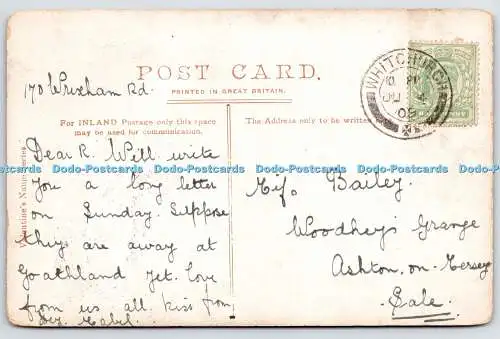 170 Wrexham Rd.
POST CARD.
PRINTED IN GREAT BRITAIN.
For INLAND Postage only this space
may be used for communication.
The Address only to be written
WHITCHURCH
Valentine's Series
Dear R. Will write
you a long letter
on Sunday. Suppose
they are away at
Goathland yet. Love
from us all. Kiss from
Miss Bailey.
Woodheys Grange
Ashton-on-Mersey
Sale.
Dodo-Postcards Dodo-Postcards Dodo-Postcards Dodo-Postcards Dodo-Postcards Dodo-Postcards